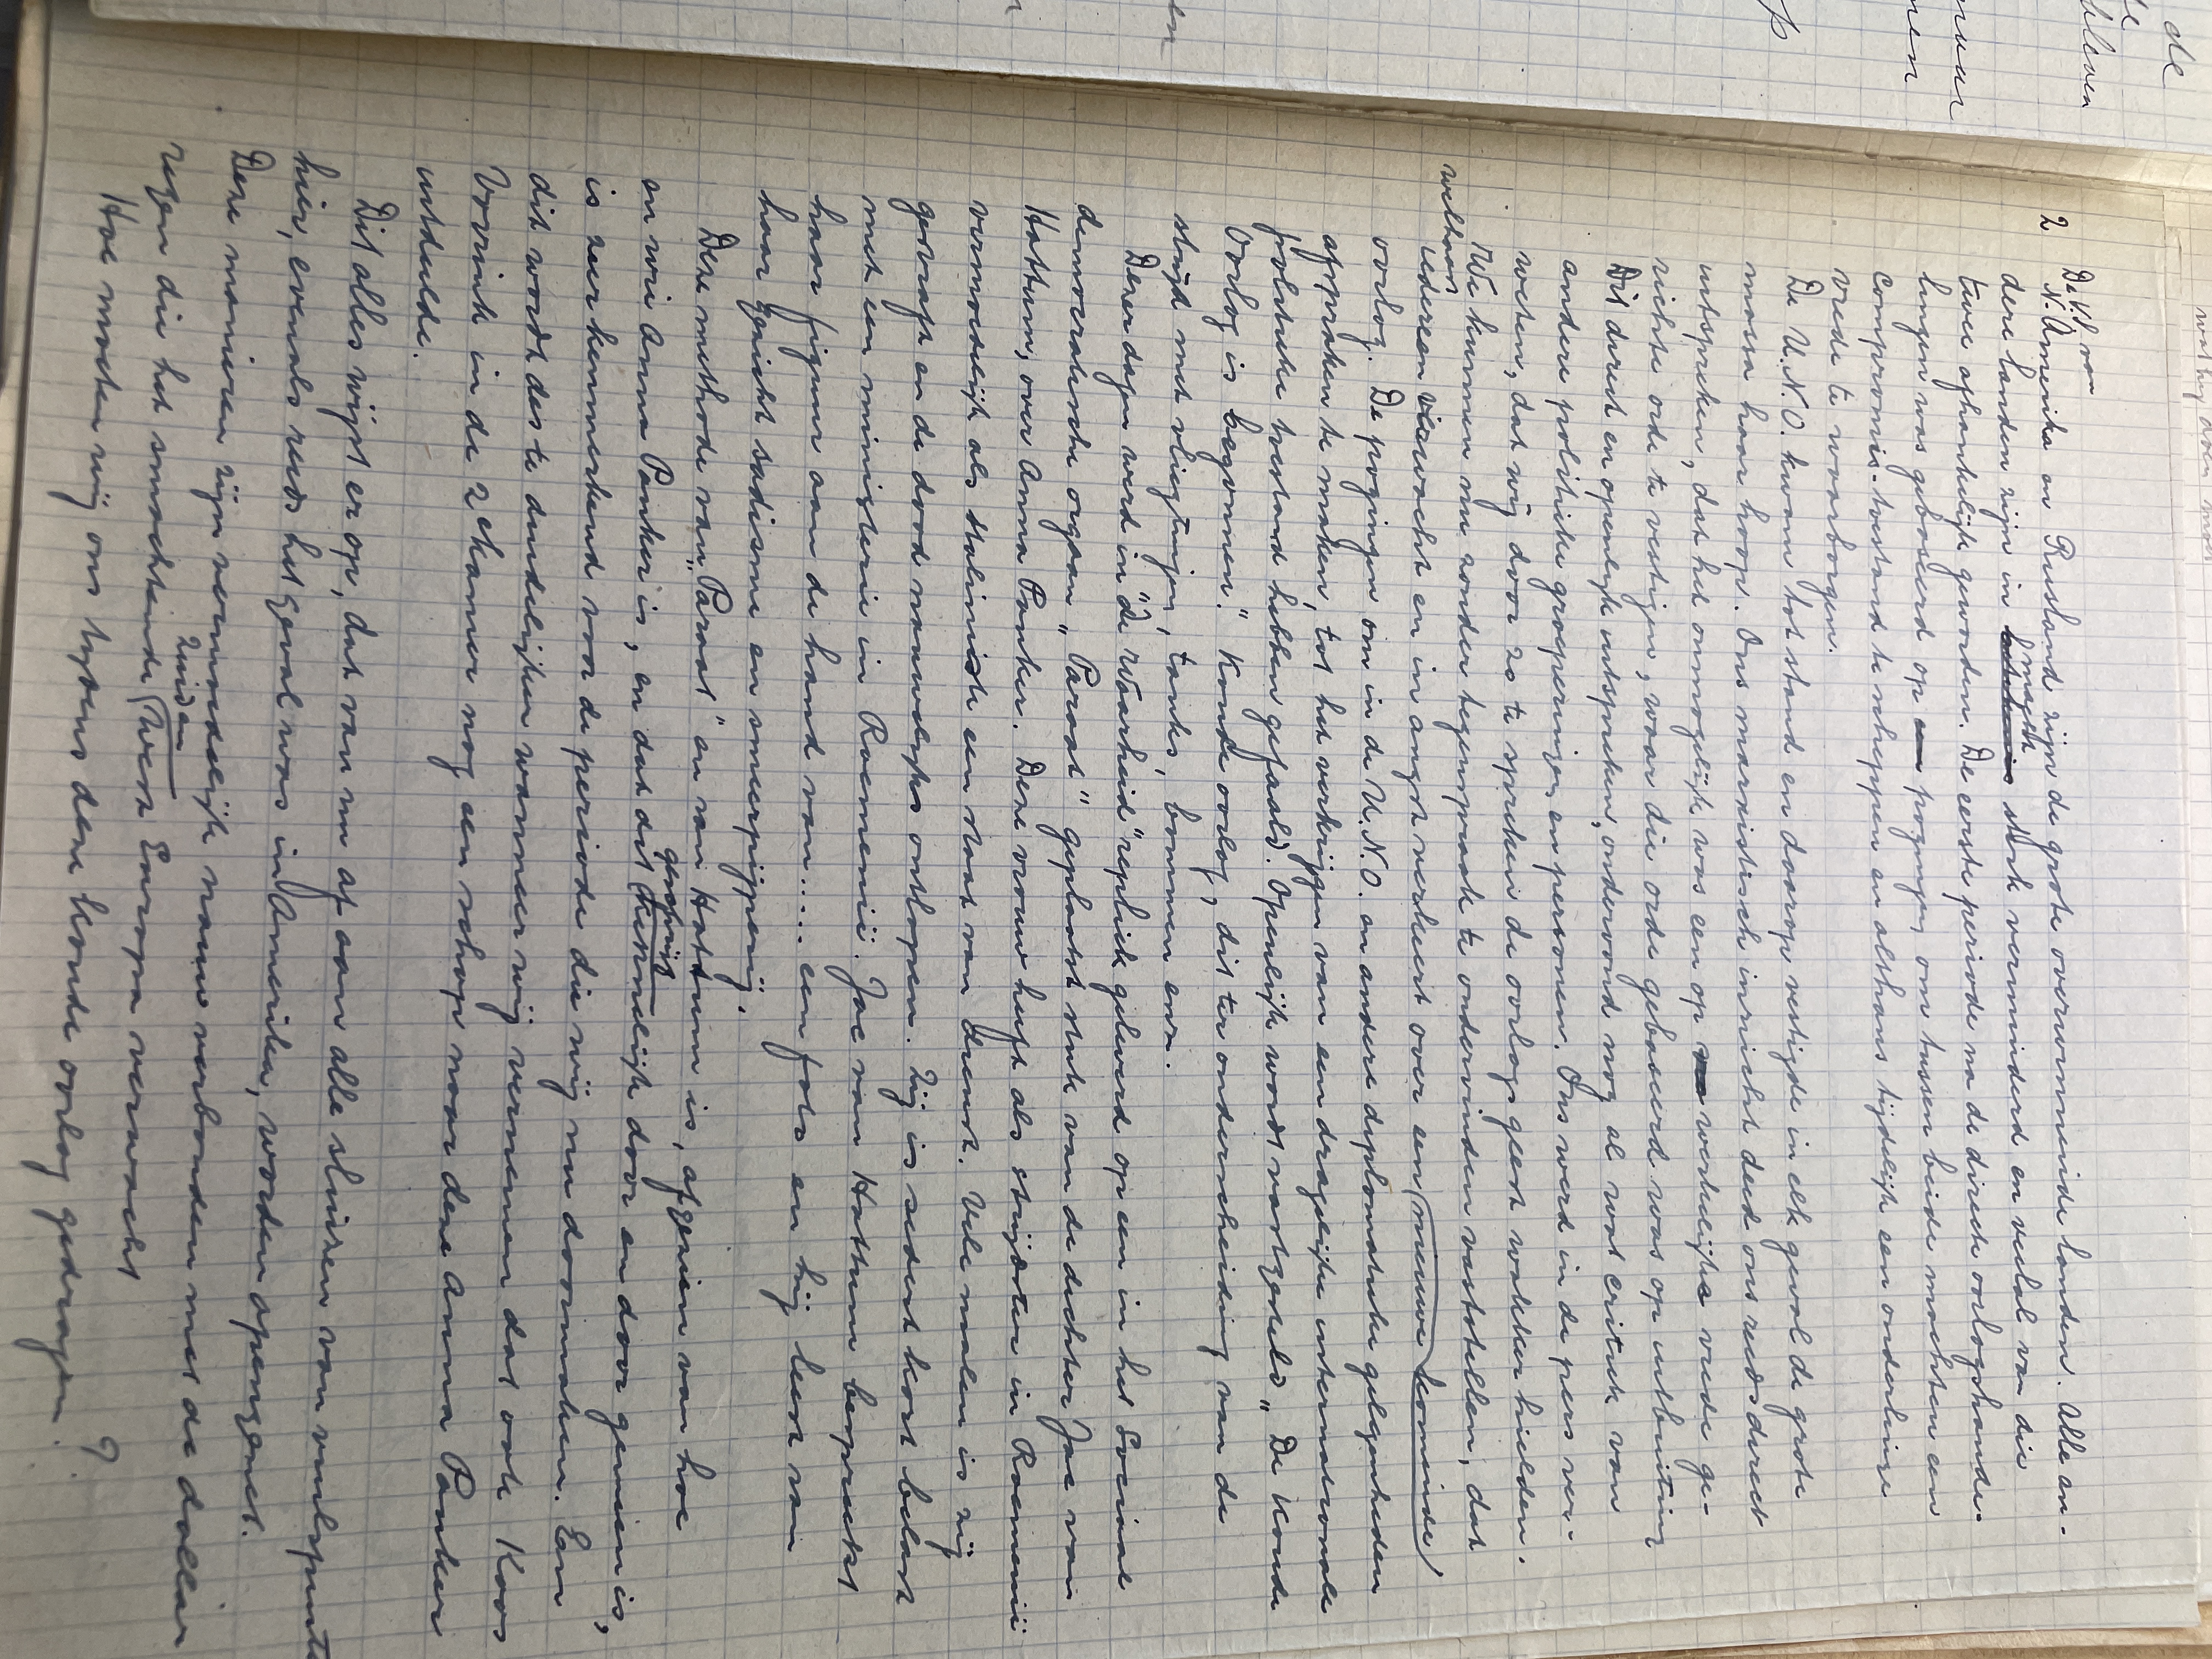 2
De V.S. van
N. Amerika en Rusland zijn de grote overwinnende landen. Alle an-
dere landen zijn in macht sterk verminderd en veelal van die
twee afhankelijk geworden. De eerste periode na de directe oorlogshande-
lingen was gebaseerd op pogingen om tussen beide machten een
compromis-toestand te scheppen en althans tijdelijk een onderlinge
vrede te waarborgen.
De U.N.O. kwam tot stand en daarop vestigde in elk geval de grote
massa haar hoop. Ons marxistisch inzicht deed ons reeds direct
uitspreken, dat het onmogelijk was een op werkelijke vrede ge-
richte orde te vestigen, waar die orde gebaseerd was op uitbuiting
Dit direct en openlijk uitspreken, ondervond nog al wat critiek van
andere politieke groeperingen en personen. Ons werd in de pers ver-
weten, dat wij door zo te spreken de oorlogsgeest wakker hielden.
We kunnen nu zonder tegenspraak te ondervinden vaststellen, dat
welhaast
iedereen verwacht en in angst verkeert over een (nieuwe) (komende)
oorlog. De pogingen om in de U.N.O. en andere diplomatieke gelegenheden
afspraken te maken, tot het verkrijgen van een dragelijke internationale
politieke toestand hebben gefaald. Openlijk wordt vastgesteld „De Koude
Oorlog is begonnen." Koude oorlog, dit ter onderscheiding van de
strijd met vliegtuigen, tanks, bommen enz.
Dezer dagen werd in „de Waarheid" repliek geleverd op een in het Sociaal
democratische orgaan „Paraat" geplaatst stuk van de dichter Jac van
Hattum, over Anna Pauker. Deze vrouw heeft als strijdster in Roemenië
vermoedelijk als staliniste een staat van dienst. Vele malen is zij
geraakt en de dood nauwelijks ontlopen. Zij is sedert kort belast
met een ministerie in Roemenië. Jac van Hattum bespreekt
haar figuur aan de hand van.... een foto en hij leest van
haar gezicht sadisme en smeerpijperij.
Deze methode van „Paraat" en van Hattum is, afgezien van hoe
en wie Anna Pauker is, en dat dit (kennelijk) door en door gemeen is,
is zeer kenmerkend voor de periode die wij nu doormaken. En
dit wordt des te duidelijker wanneer wij vernemen dat ook Koos
Vorrink in de 2e kamer nog een schop naar deze Anna Pauker
uitdeelde.
Dit alles wijst er op, dat van nu af aan alle sluizen van vuilspuiterij
hier, evenals reeds het geval was in Amerika, worden opengezet.
Deze manieren zijn vermoedelijk nauw verbonden met de dollar
zegen die het smachtende Zuiden (West) Europa verwacht
Hoe moeten wij ons tijdens deze koude oorlog gedragen. ?